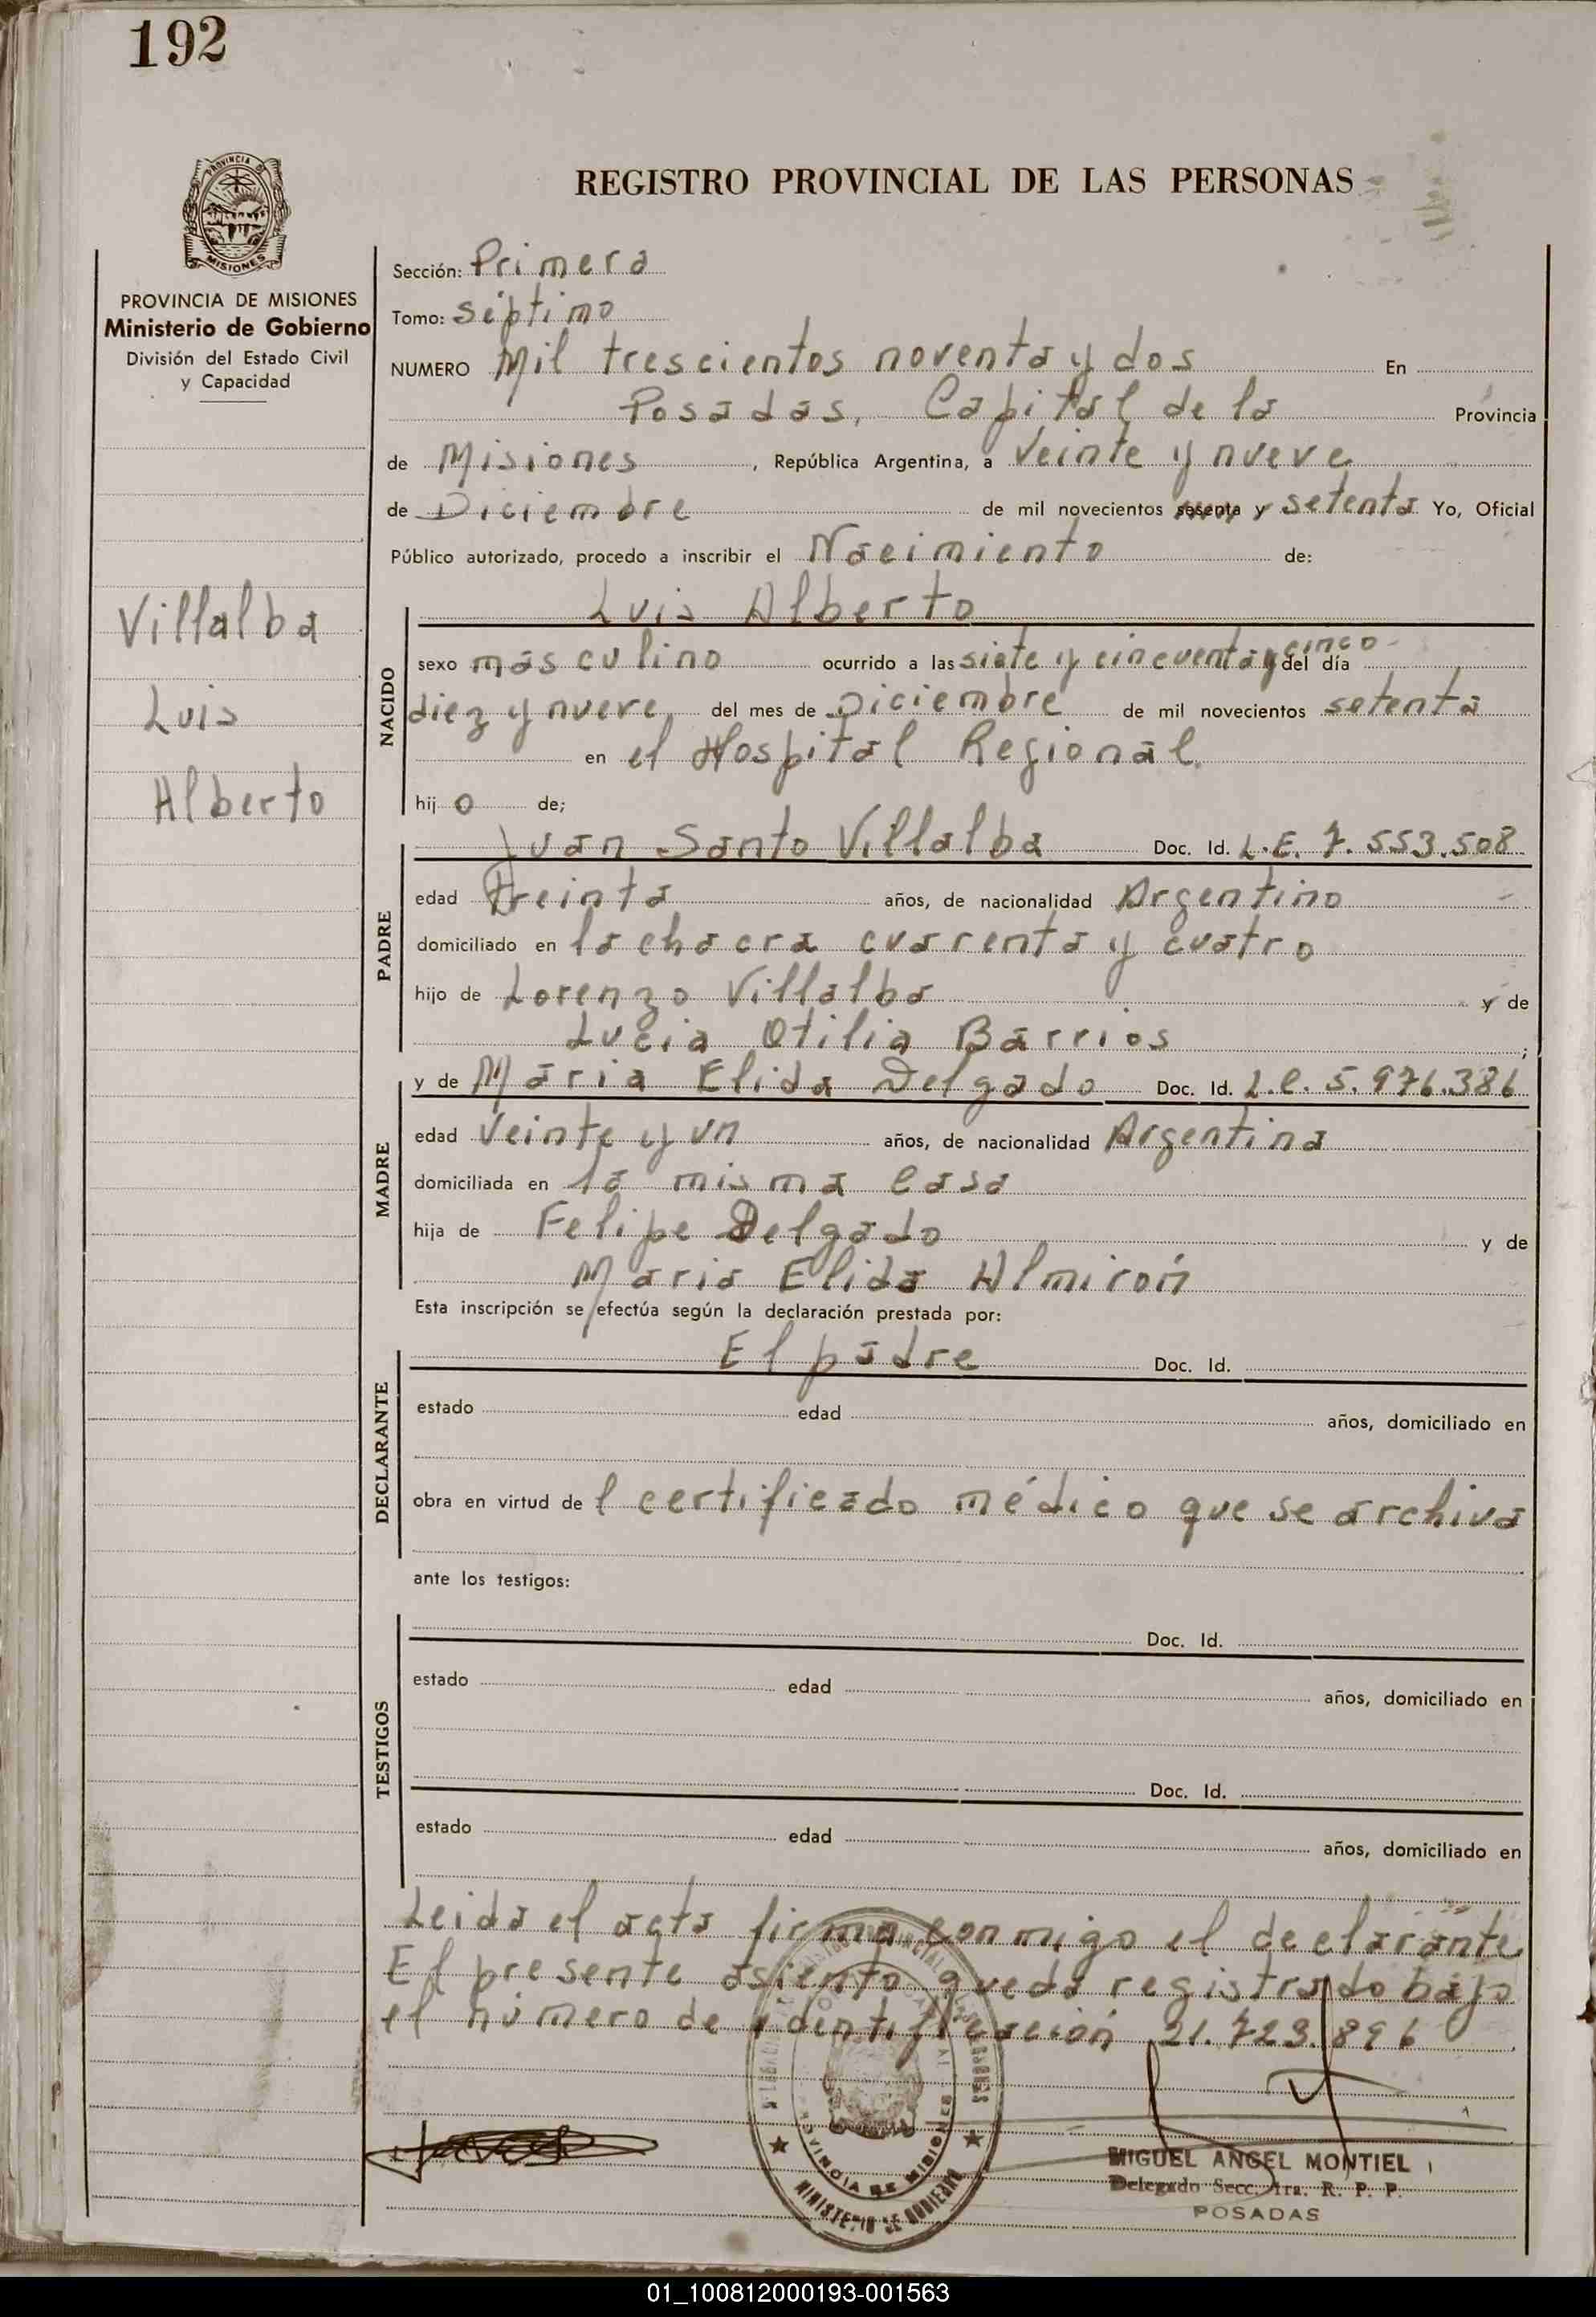 192
PROVINCIA DE
MISIONES
PROVINCIA DE MISIONES
Ministerio de Gobierno
División del Estado Civil
y Capacidad
Villalba
Luis
Alberto
REGISTRO PROVINCIAL DE LAS PERSONAS
Sección: Primera
Tomo: séptimo
NUMERO Mil trescientos noventa y dos En
Posadas, Capital de la Provincia
de Misiones, República Argentina, a Veinte y nueve
de Diciembre de mil novecientos sesenta y setenta Yo, Oficial
Público autorizado, procedo a inscribir el Nacimiento de:
Luis Alberto
NACIDO
sexo masculino ocurrido a las siete y cincuenta y cinco del día
diez y nueve del mes de Diciembre de mil novecientos setenta
en el Hospital Regional.
hijo de;
PADRE
Juan Santo Villalba Doc. Id. L.E. 7.553.508
edad Treinta años, de nacionalidad Argentino
domiciliado en la chacra cuarenta y cuatro
hijo de Lorenzo Villalba y de
Lucia Otilia Barrios;
MADRE
y de Maria Elida Delgado Doc. Id. L.C. 5.976.386
edad Veinte y un años, de nacionalidad Argentina
domiciliada en la misma casa
hija de Felipe Delgado y de
Maria Elida Almirón
Esta inscripción se efectúa según la declaración prestada por:
DECLARANTE
El padre Doc. Id.
estado edad años, domiciliado en
obra en virtud del certificado médico que se archiva
ante los testigos:
TESTIGOS
Doc. Id.
estado edad años, domiciliado en
Doc. Id.
estado edad años, domiciliado en
Leida el acta firma conmigo el declarante
El presente asiento queda registrado bajo
el número de identificación 21.723.896
PROVINCIA DE MISIONES
MINISTERIO DE GOBIERNO
MIGUEL ANGEL MONTIEL
Delegado Secc. 1ra. R. P. P.
POSADAS
01_100812000193-001563